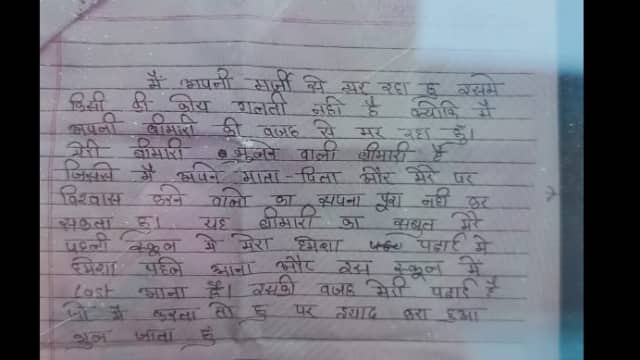 मैं अपनी मर्जी से मर रहा हु इसमे
किसी की कोय गलती नही है क्योकि मै
अपनी बीमारी की वजह से मर रहा हु।
मेरी बीमारी भुलने वाली बीमारी है
जिससे मै अपने माता-पिता और मेरे पर
विश्वास करने वालो का सपना पुरा नही कर
सकता हु। यह बीमारी का सबुत मेरे
पहली स्कूल में मेरा हमेशा पढाई में
हमेशा पहले आना और इस स्कूल में
Lost आना है। इसकी वजह मेरी पढाई है
जो मै करता तो हु पर याद करा हुआ
भुल जाता हु